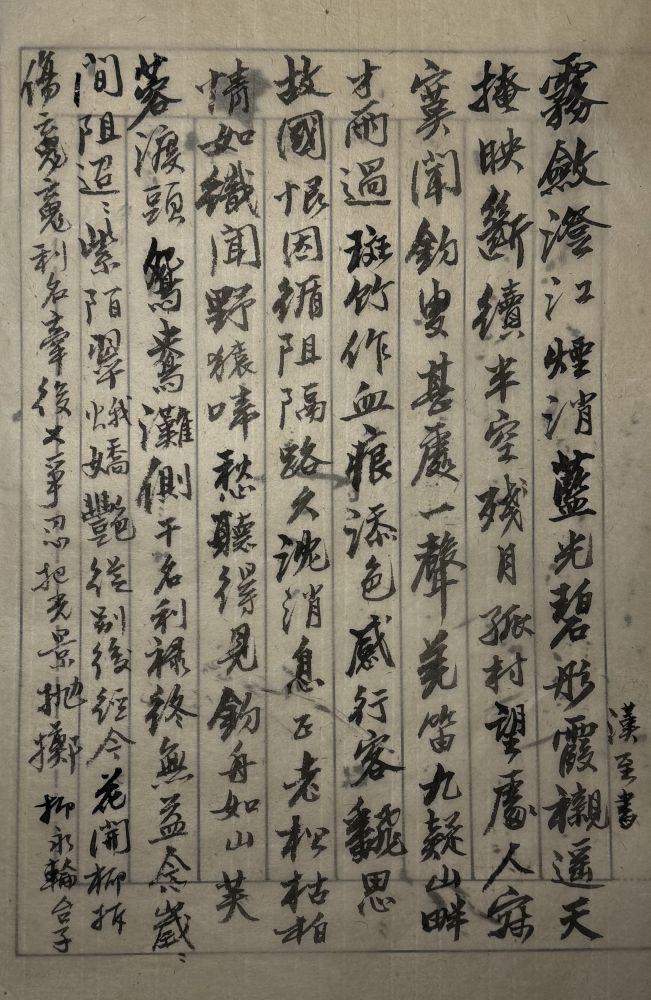 霧斂澄江煙消藍光碧彤霞襯遥天
掩映斷續半空殘月孤村望處人寂
寞聞釣叟甚處一聲羌笛九疑山畔
才雨過斑竹作血痕添色感行客翻思
故國恨因循阻隔路久沈消息正老松枯柏
情如織聞野猿啼愁聽得見釣舟初出芙
蓉渡頭鴛鴦灘側干名利祿終無益念歲〻
間阻迢〻紫陌翠娥嬌艷從別後經今花開柳拆
傷魂魄利名牽役又爭忍把光景拋擲 柳永輪台子
漢至書